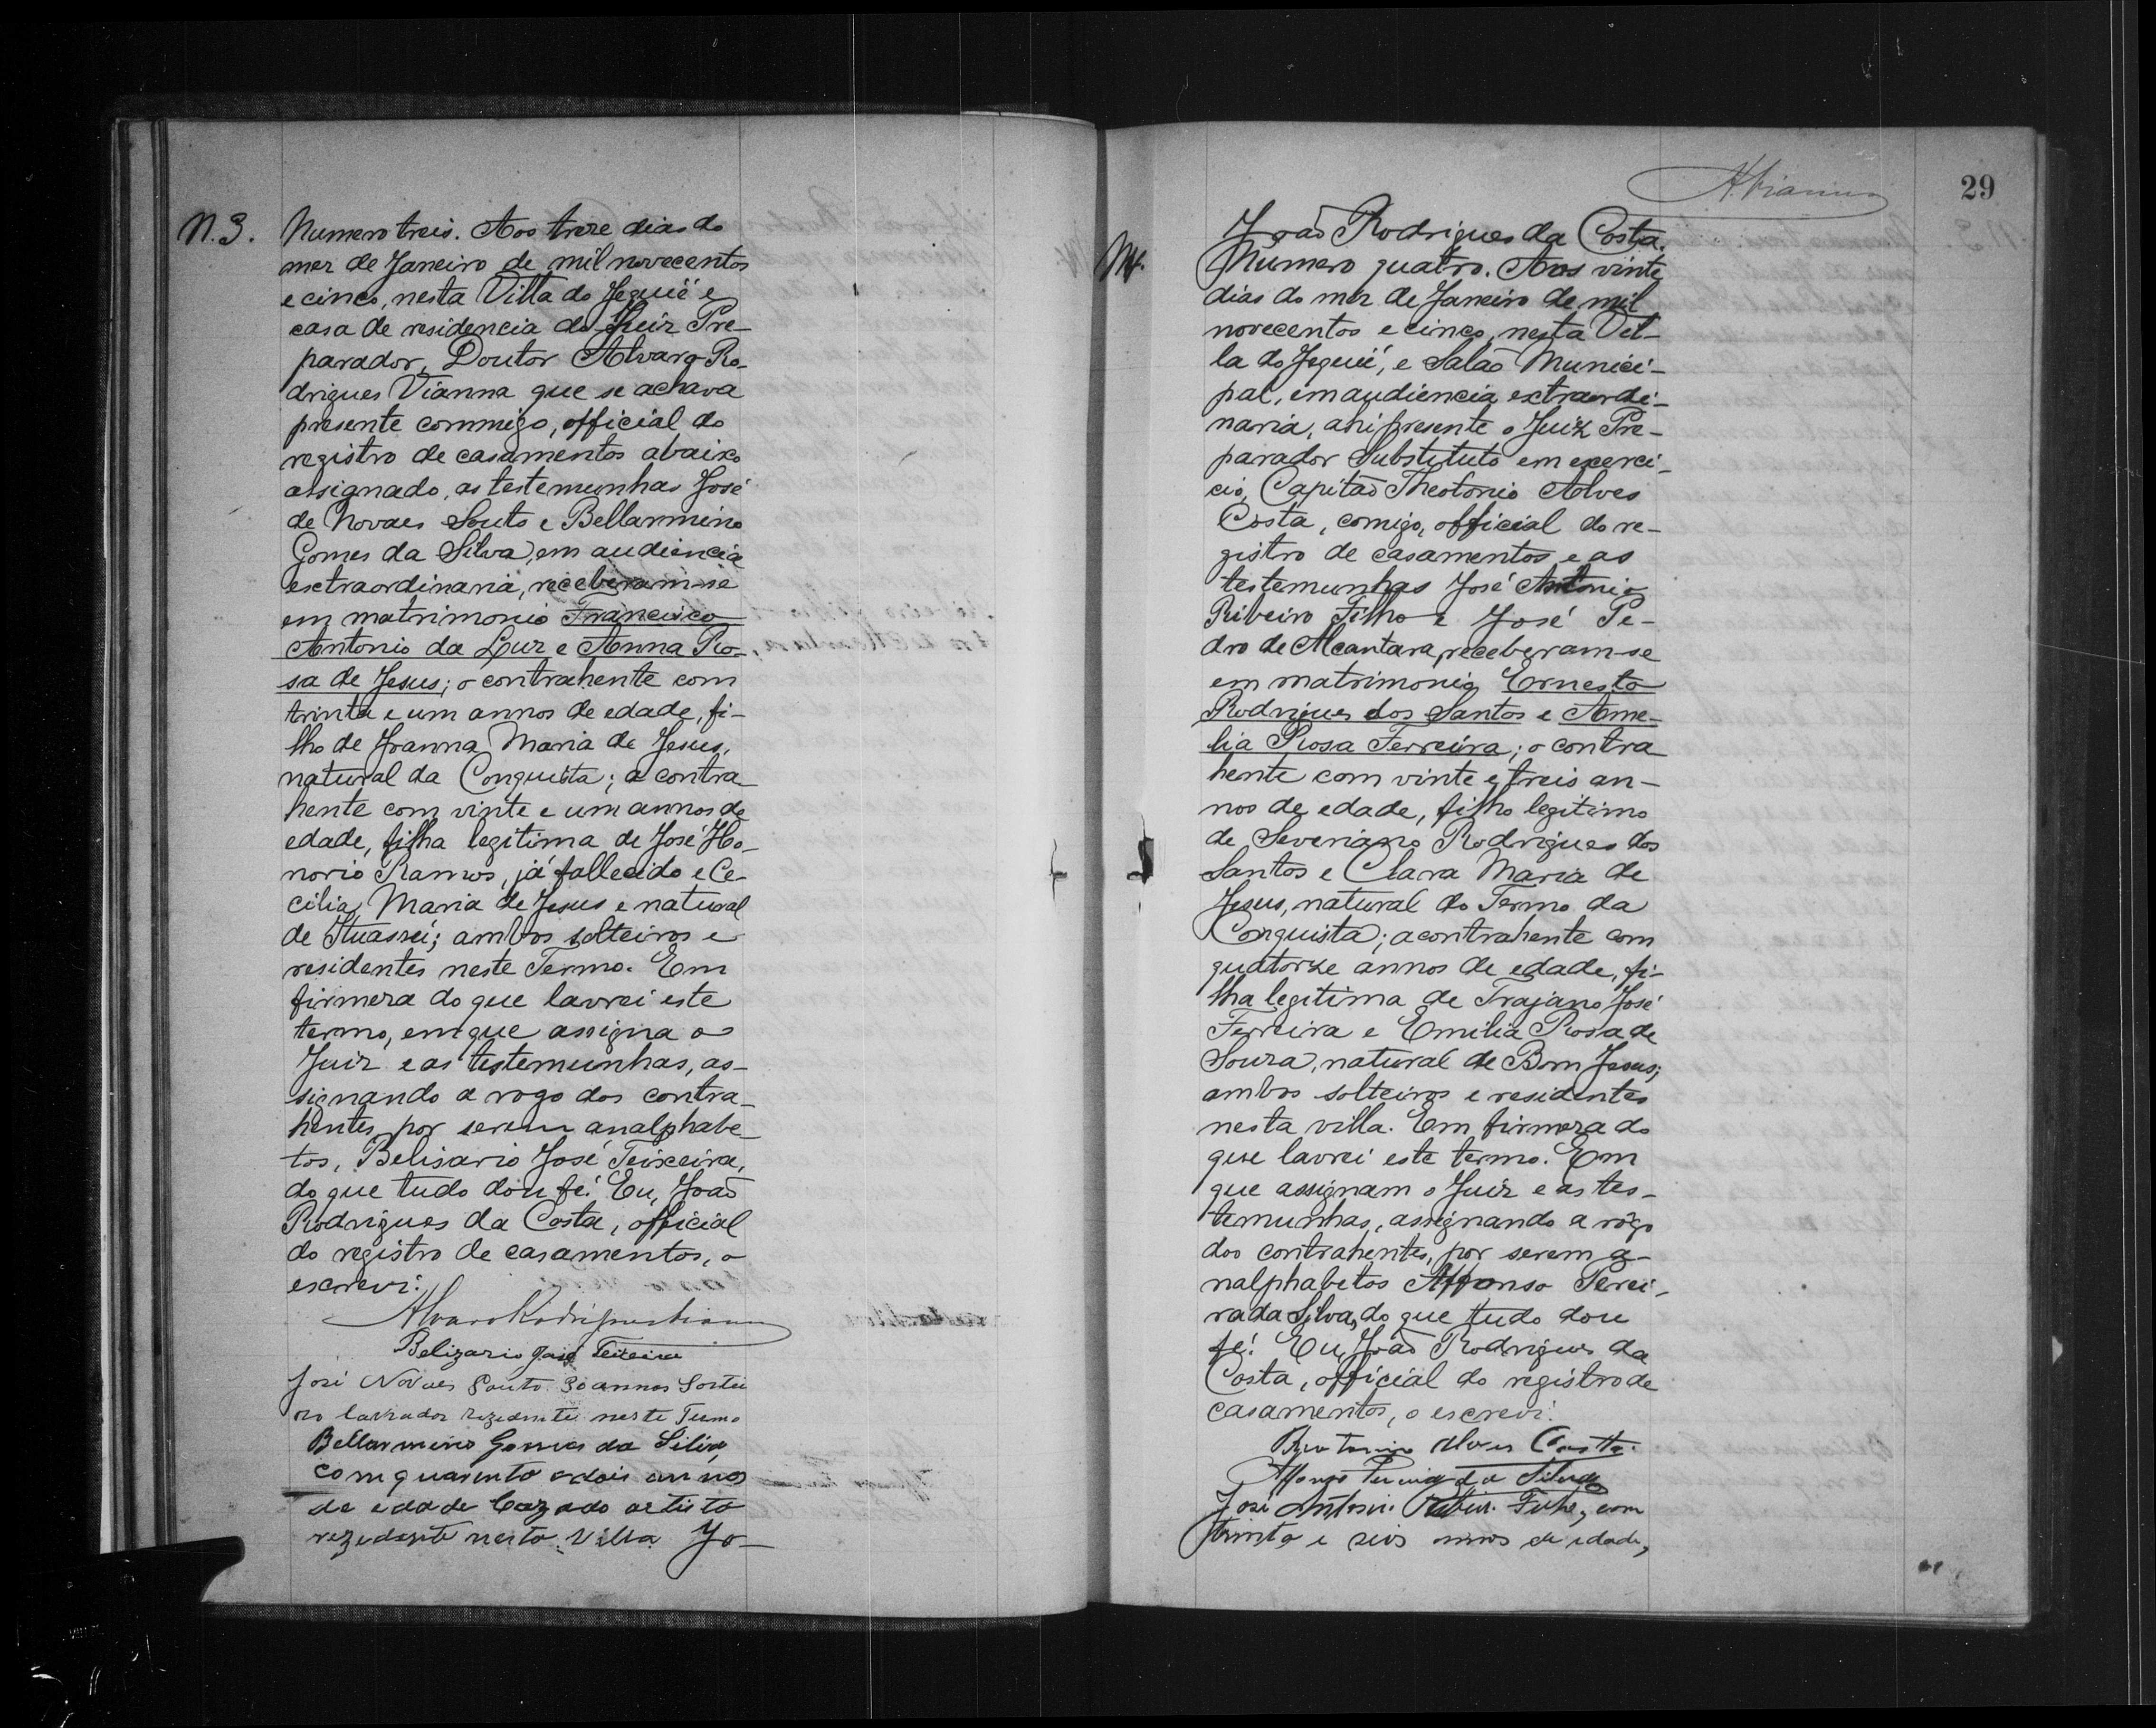 N. 3. Numero treis. Aos treze dias do
mez de Janeiro de mil novecentos
e cinco, nesta Villa do Jequié e
casa de residencia do Juiz Pre-
parador, Doutor Alvaro Ro-
drigues Vianna que se achava
presente commigo, official do
registro de casamentos abaixo
assignado, as testemunhas José
de Novaes Souto e Bellarmino
Gomes da Silva, em audiencia
extraordinaria, receberam-se
em matrimonio Francisco
Antonio da Luz e Anna Ro-
sa de Jesus; o contrahente com
trinta e um annos de edade, fi-
lho de Joanna Maria de Jesus,
natural da Conquista; a contra
hente com vinte e um annos de
edade, filha legitima de José Ho-
norio Ramos, já fallecido e Ce-
cilia Maria de Jesus e natural
de Ituassú; ambos solteiros e
residentes neste Termo. Em
firmeza do que lavrei este
termo, em que assigna o
Juiz e as testemunhas, as-
signando a rogo dos contra-
hentes, por serem analphabe-
tos, Belisario José Teixeira,
do que tudo dou fé. Eu, João
Rodrigues da Costa, official
do registro de casamentos, o
escrevi.
Alvaro Rodrigues Vianna
Belizario José Teixeira
José Novaes Souto 30 annos Soltei
ro lavrador rezidente neste Termo
Bellarmino Gomes da Silva
com quarenta e dois annos
de edade Cazado artista
rezidente nesta Villa Jo-
A. Vianna
29
João Rodrigues da Costa.
N4. Numero quatro. Aos vinte
dias do mez de Janeiro de mil
novecentos e cinco, nesta Vil-
la do Jequié, e Salão Munici-
pal, em audiencia extraordi-
naria, ahi presente o Juiz Pre-
parador Substituto em exerci-
cio, Capitão Theotonio Alves
Costa, comigo, official do re-
gistro de casamentos e as
testemunhas José Antonio
Ribeiro Filho e José Pe-
dro de Alcantara, receberam-se
em matrimonio Ernesto
Rodrigues dos Santos e Ame-
lia Rosa Ferreira; o contra
hente com vinte e treis an-
nos de edade, filho legitimo
de Severiano Rodrigues dos
Santos e Clara Maria de
Jesus, natural do Termo da
Conquista; a contrahente com
quatorze annos de edade, fi-
lha legitima de Trajano José
Ferreira e Emilia Rosa de
Souza, natural de Bom Jesus;
ambos solteiros e residentes
nesta villa. Em firmeza do
que lavrei este termo. Em
que assignam o Juiz e as tes-
temunhas, assignando a rogo
dos contrahentes, por serem a-
nalphabetos Affonso Perei-
ra da Silva, do que tudo dou
fé. Eu, João Rodrigues da
Costa, official do registro de
casamentos, o escrevi.
Theotonio Alves Costa.
Affonso Pereira da Silva
José Antonio Ribeiro Filho, com
trinta e seis annos de edade,